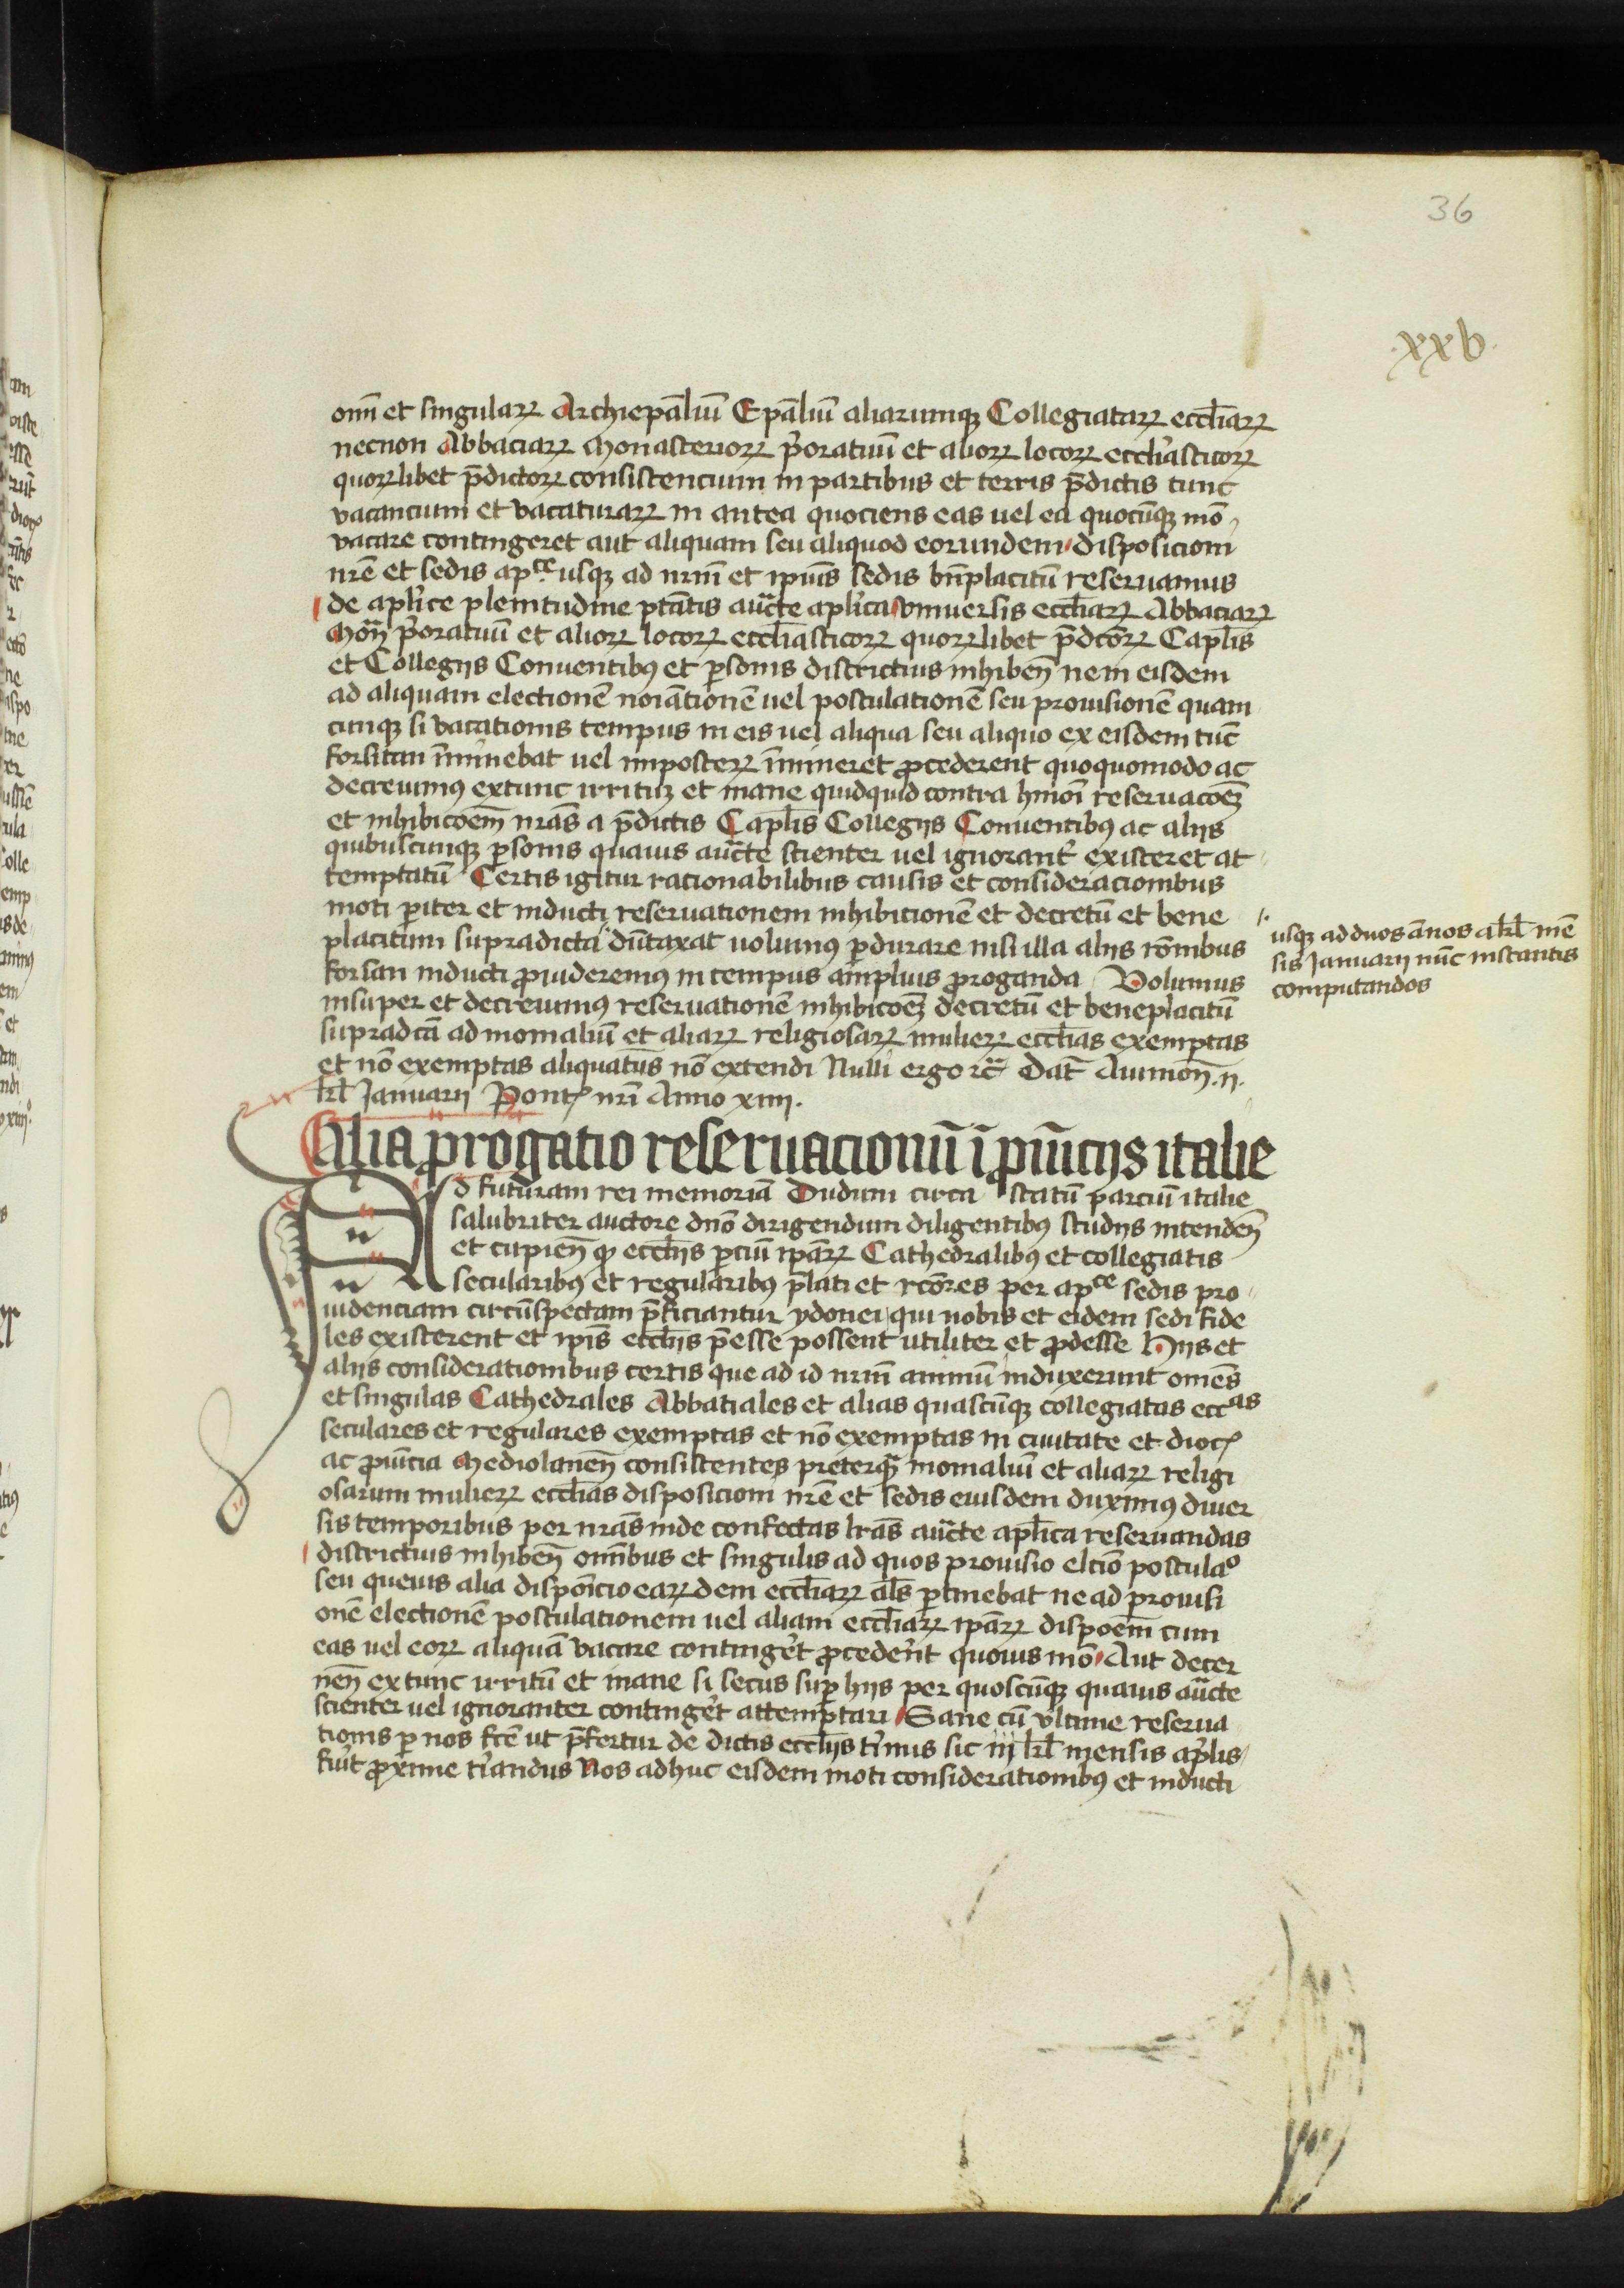 36
.xxv.
om̄ et singularꝝ Archiepāliū Epāliū aliarumqꝫ Collegiatarꝝ eccl̄iarꝝ
necnon Abbaciarꝝ Monasteriorꝝ p̓oratuū et aliorꝝ locorꝝ eccl̓iasticorꝝ
quorꝝlibet p̄dictorꝝ consistencium in partibus et terris p̄dictis tunc
vacancium et vacaturarꝝ in antea quociens eas uel ea quocūqꝫ mō
vacare contingeret aut aliquam seu aliquod eorundem disposicioni
nr̄e et sedis apᶜᵉ usqꝫ ad nrm̄ et ip̄ius sedis bn̄placitū reseruamus
de apl̓ice plenitudine ptātis auc̄te apl̓ica vniuersis eccl̄iarꝝ Abbaciarꝝ
Mōn p̓oratuū et aliorꝝ locorꝝ eccl̄iasticorꝝ quorꝝlibet p̄dc̄orꝝ Capl̄is
et Collegijs Conuentibꝰ et ꝑsonis districtius inhiben̄ ne in eisdem
ad aliquam electionē noiātionē uel postulationē seu prouisionē quam
cunqꝫ si vacationis tempus in eis uel aliqua seu aliquo ex eisdem tūc
forsitan īminebat uel imposterꝝ īmineret ꝓcederent quoquomodo ac
decreuimꝰ extunc irritūꝫ et inane quidquid contra hmōi reseruacōeꝫ
et inhibicōem nrās a p̄dictis Capl̄is Collegijs Conuentibꝰ ac alijs
quibuscunqꝫ ꝑsonis quauis auc̄te scienter uel ignorant̓ existeret at
temptatū Certis igitur racionabilibus causis et consideracionibus
moti ꝑiter et inducti reseruationem inhibitionē et decretū et bene
placitum supradicta dūtaxat uolumꝰ ꝑdurare nisi illa alijs rōnibus
forsan inducti ꝓuideremꝰ in tempus amplius ꝓroganda Volumus
insuper et decreuimꝰ reseruationē inhibicōeꝫ decretū et beneplacitū
supradc̄a ad monialiū et aliarꝝ religiosarꝝ mulierꝝ eccl̄ias exemptas
et nō exemptas aliquaten̄s nō extendi Nulli ergo ⁊c̄ Dat̄ Auinion̄ .ij.
kl̄ Januarij Pont̄ nr̄i Anno xiiij.
usqꝫ ad duos ānos a kl̄ mē
sis Januarij nūc instantis
computandos
Alia ꝓrogatio reseruacionū ī ꝓuīcijs italie
Ad futuram rei memoriā Dudum circa statū parciū italie
salubriter auctore dn̄o dirigendum diligentibꝰ studijs intenden̄
et cupien̄ qꝫ eccl̄ijs ꝑciū ip̄arꝝ Cathedralibꝰ et collegiatis
secularibꝰ et regularibꝰ p̄lati et rc̄ores per apᶜᵉ sedis pro
uidenciam circūspectam p̄ficiantur ydonei qui nobis et eidem sedi fide
les existerent et ip̄is eccl̄ijs p̄esse possent utiliter et ꝓdesse Hijs et
alijs considerationibus certis que ad id nrm̄ animū induxerunt omēs
et singulas Cathedrales Abbatiales et alias quascūqꝫ collegiatas eccᵃˢ
seculares et regulares exemptas et nō exemptas in ciuitate et dioc̄
ac ꝓuīcia Mediolanen̄ consistentes preterqꝫ monialiū et aliarꝝ religi
osarum mulierꝝ eccl̄ias disposicioni nr̄e et sedis eiusdem duximꝰ diuer
sis temporibus per nrās inde confectas lr̄as auc̄te apl̄ica reseruandas
districtius inhiben̄ omībus et singulis ad quos prouisio elcīo postulaᵒ
seu queuis alia dispoīcio earꝝdem eccl̄iarꝝ al̄s ꝑtinebat ne ad prouisi
onē electionē postulationem uel aliam eccl̄iarꝝ ip̄arꝝ dispōem cum
eas uel eorꝝ aliquā vacare continge̓t ꝓcede̓nt quouis mō Aut decer
nen̄ extunc irritū et inane si secus suꝑ hijs per quoscūqꝫ quauis auc̄te
scienter uel ignoranter continge̓t attemptari Sane cū vltime reserua
tionis ꝑ nos fc̄e ut p̄fertur de dictis eccl̄ijs t̓minus sic iij kl̄ mensis ap̓lis
fu̓it ꝓxime t̓iandus Nos adhuc eisdem moti considerationibꝰ et inducti